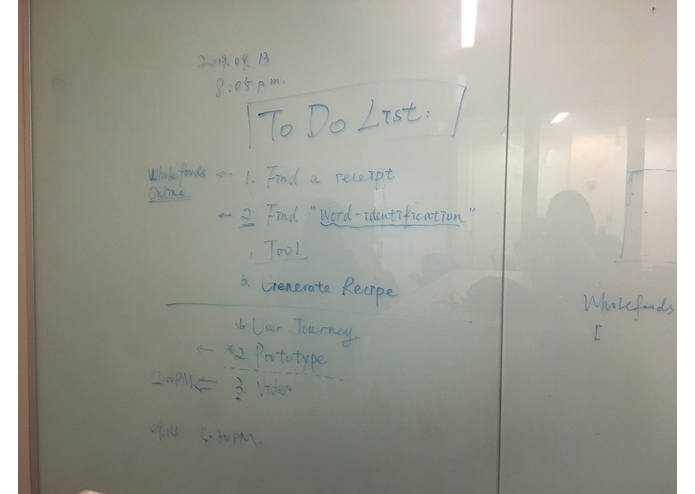 8:05 p.m.
To Do List:
Whole foods ← 1. Find a receipt
Online
← 2. Find "Word-identification"
Tool
3. Generate Recipe
Wholefoods
[
1. User Journey
← *2 Prototype
2:00PM ← 3. Video